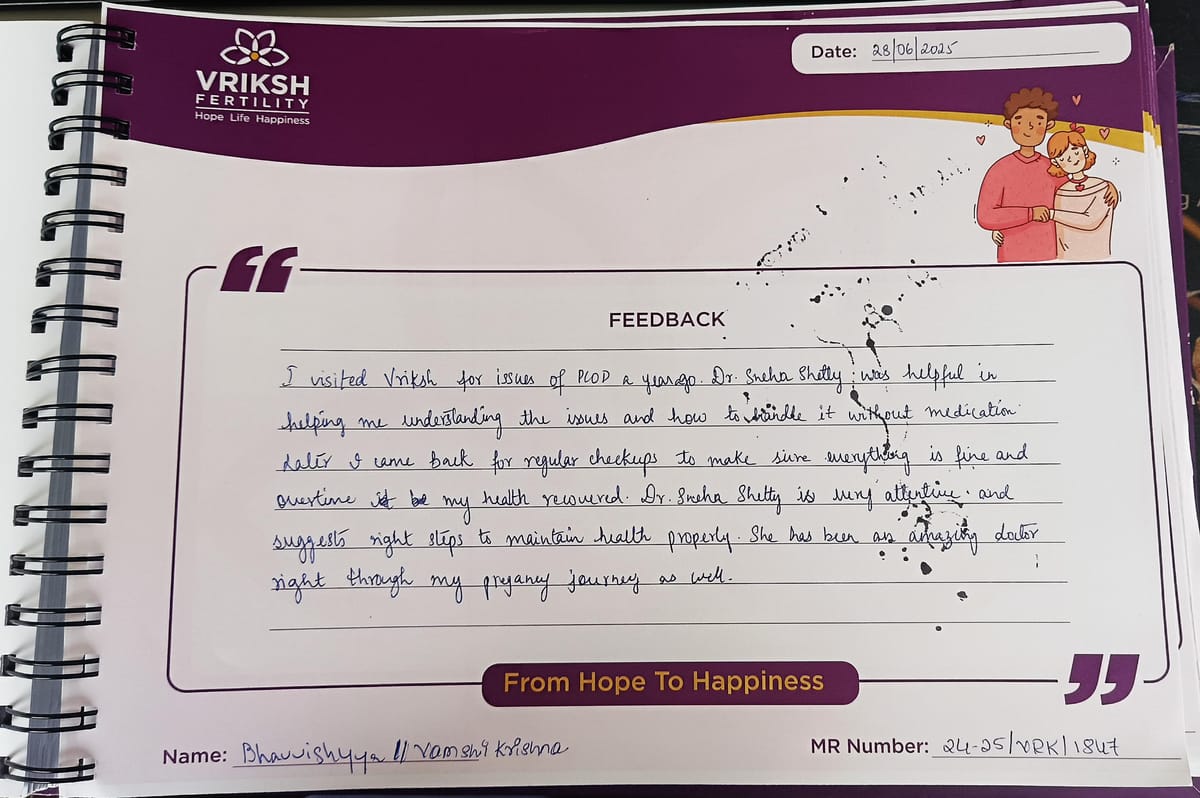 VRIKSH
FERTILITY
Hope Life Happiness
Date: 28/06/2025
FEEDBACK
I visited Vriksh for issues of PCOD a year ago. Dr. Sneha Shetty was helpful in
helping me understanding the issues and how to handle it without medication.
Later I came back for regular checkups to make sure everything is fine and
overtime my health recovered. Dr. Sneha Shetty is very attentive. and
suggests right steps to maintain health properly. She has been an amazing doctor
right through my pregancy journey as well.
From Hope To Happiness
Name: Bhavvishyya // Vamshi Krishna
MR Number: 24-25/VRK/1847